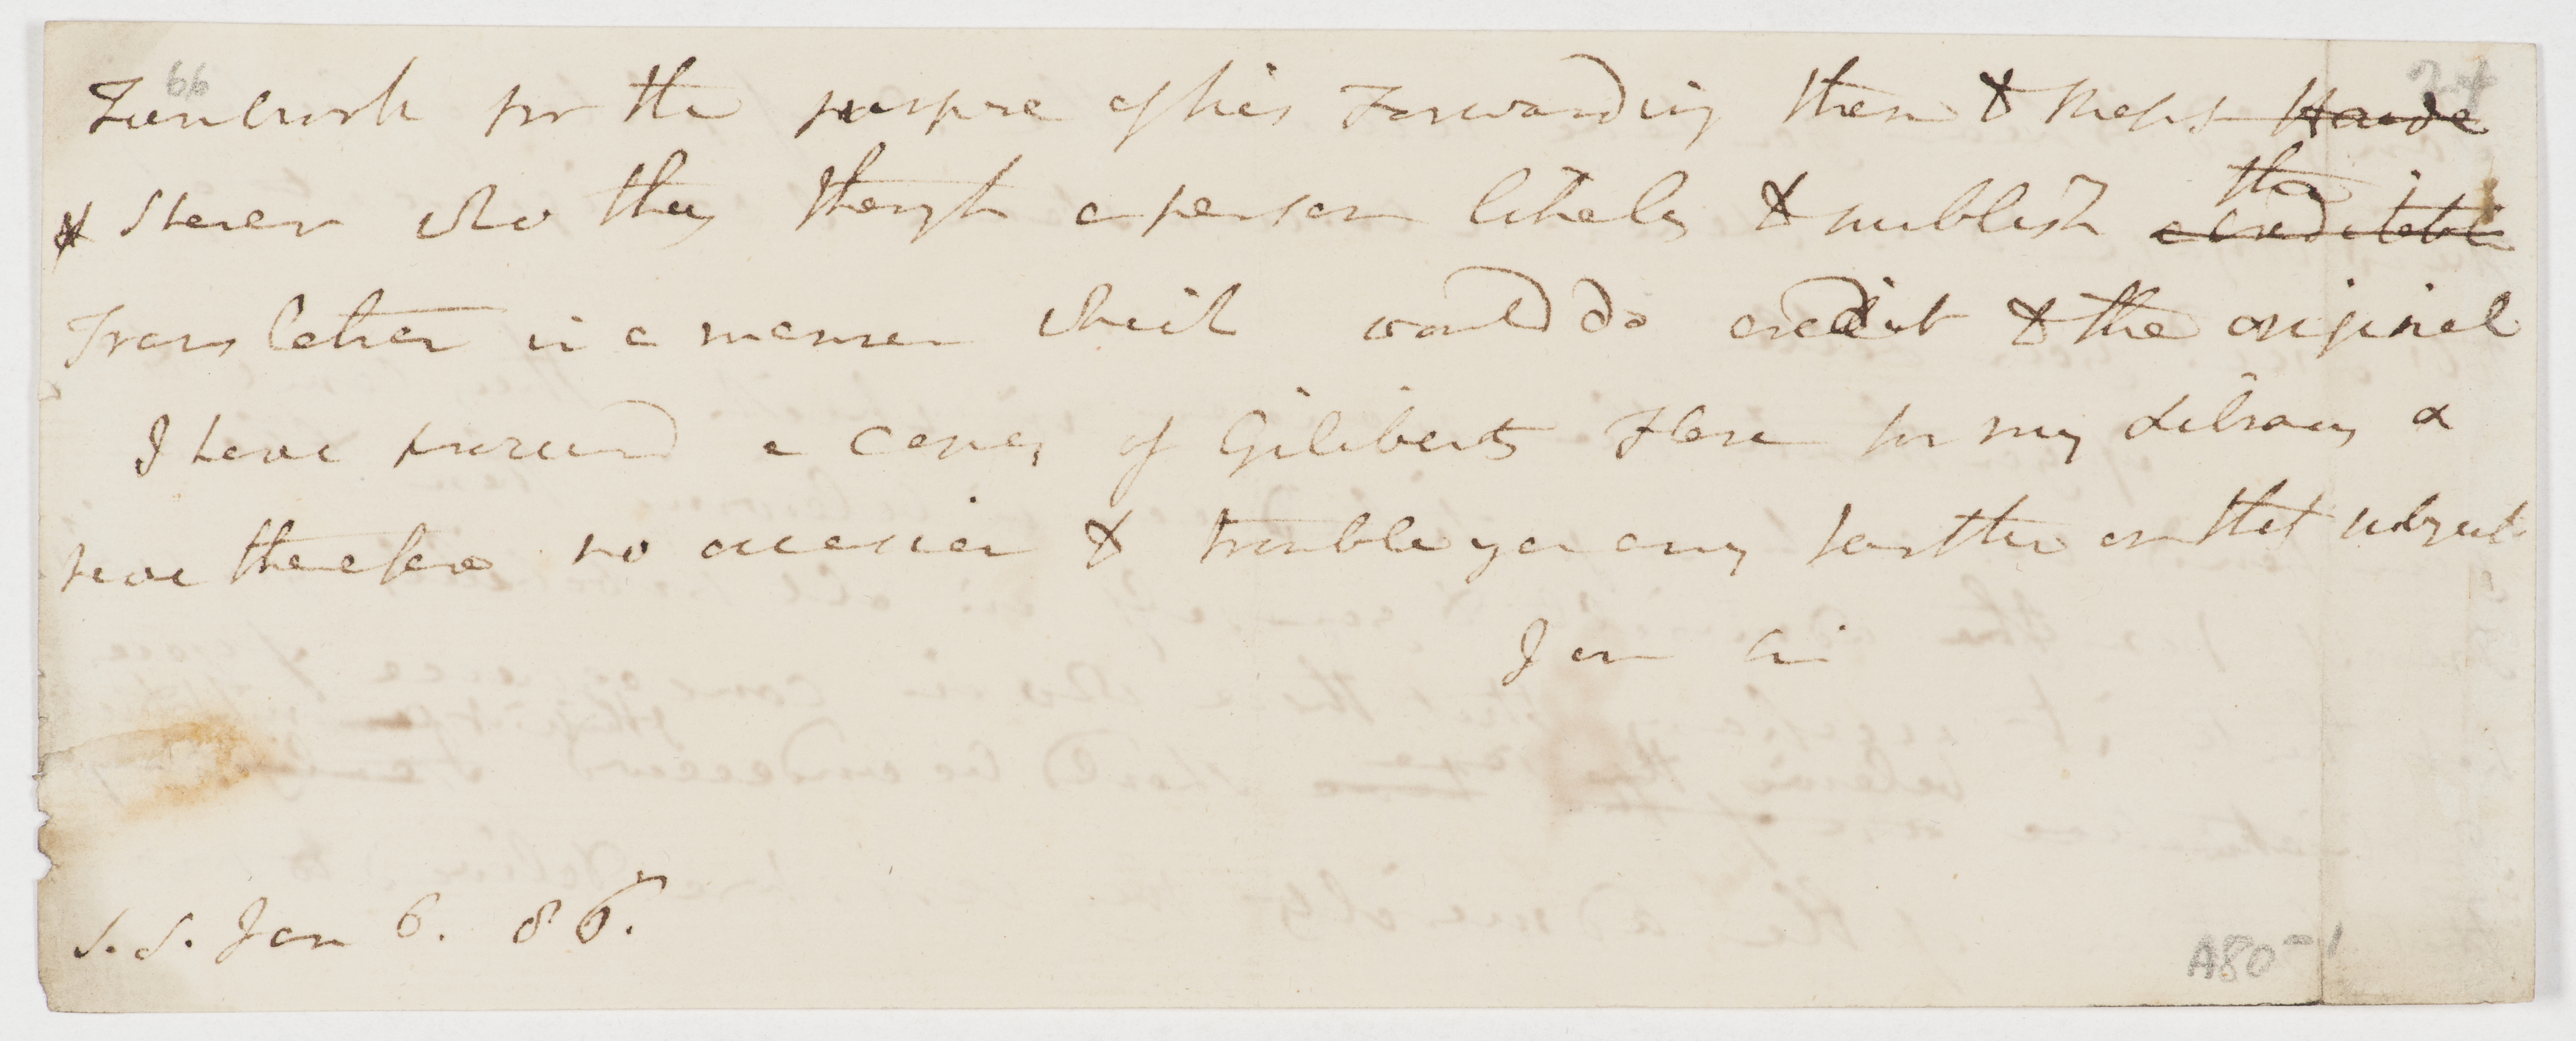 66
24
Zimbrok for the purpose of his Forwarding them to Messrs Haude
& Spener who they though a person likely to publish the
Translation in a manner which would do credit to the original
I have procurd a Copy of Giliberts Flora for my Library &
have therefore no occasion to trouble you any farther on that subject
I am Sir
S. S. Jan 6. 86.
A80-1